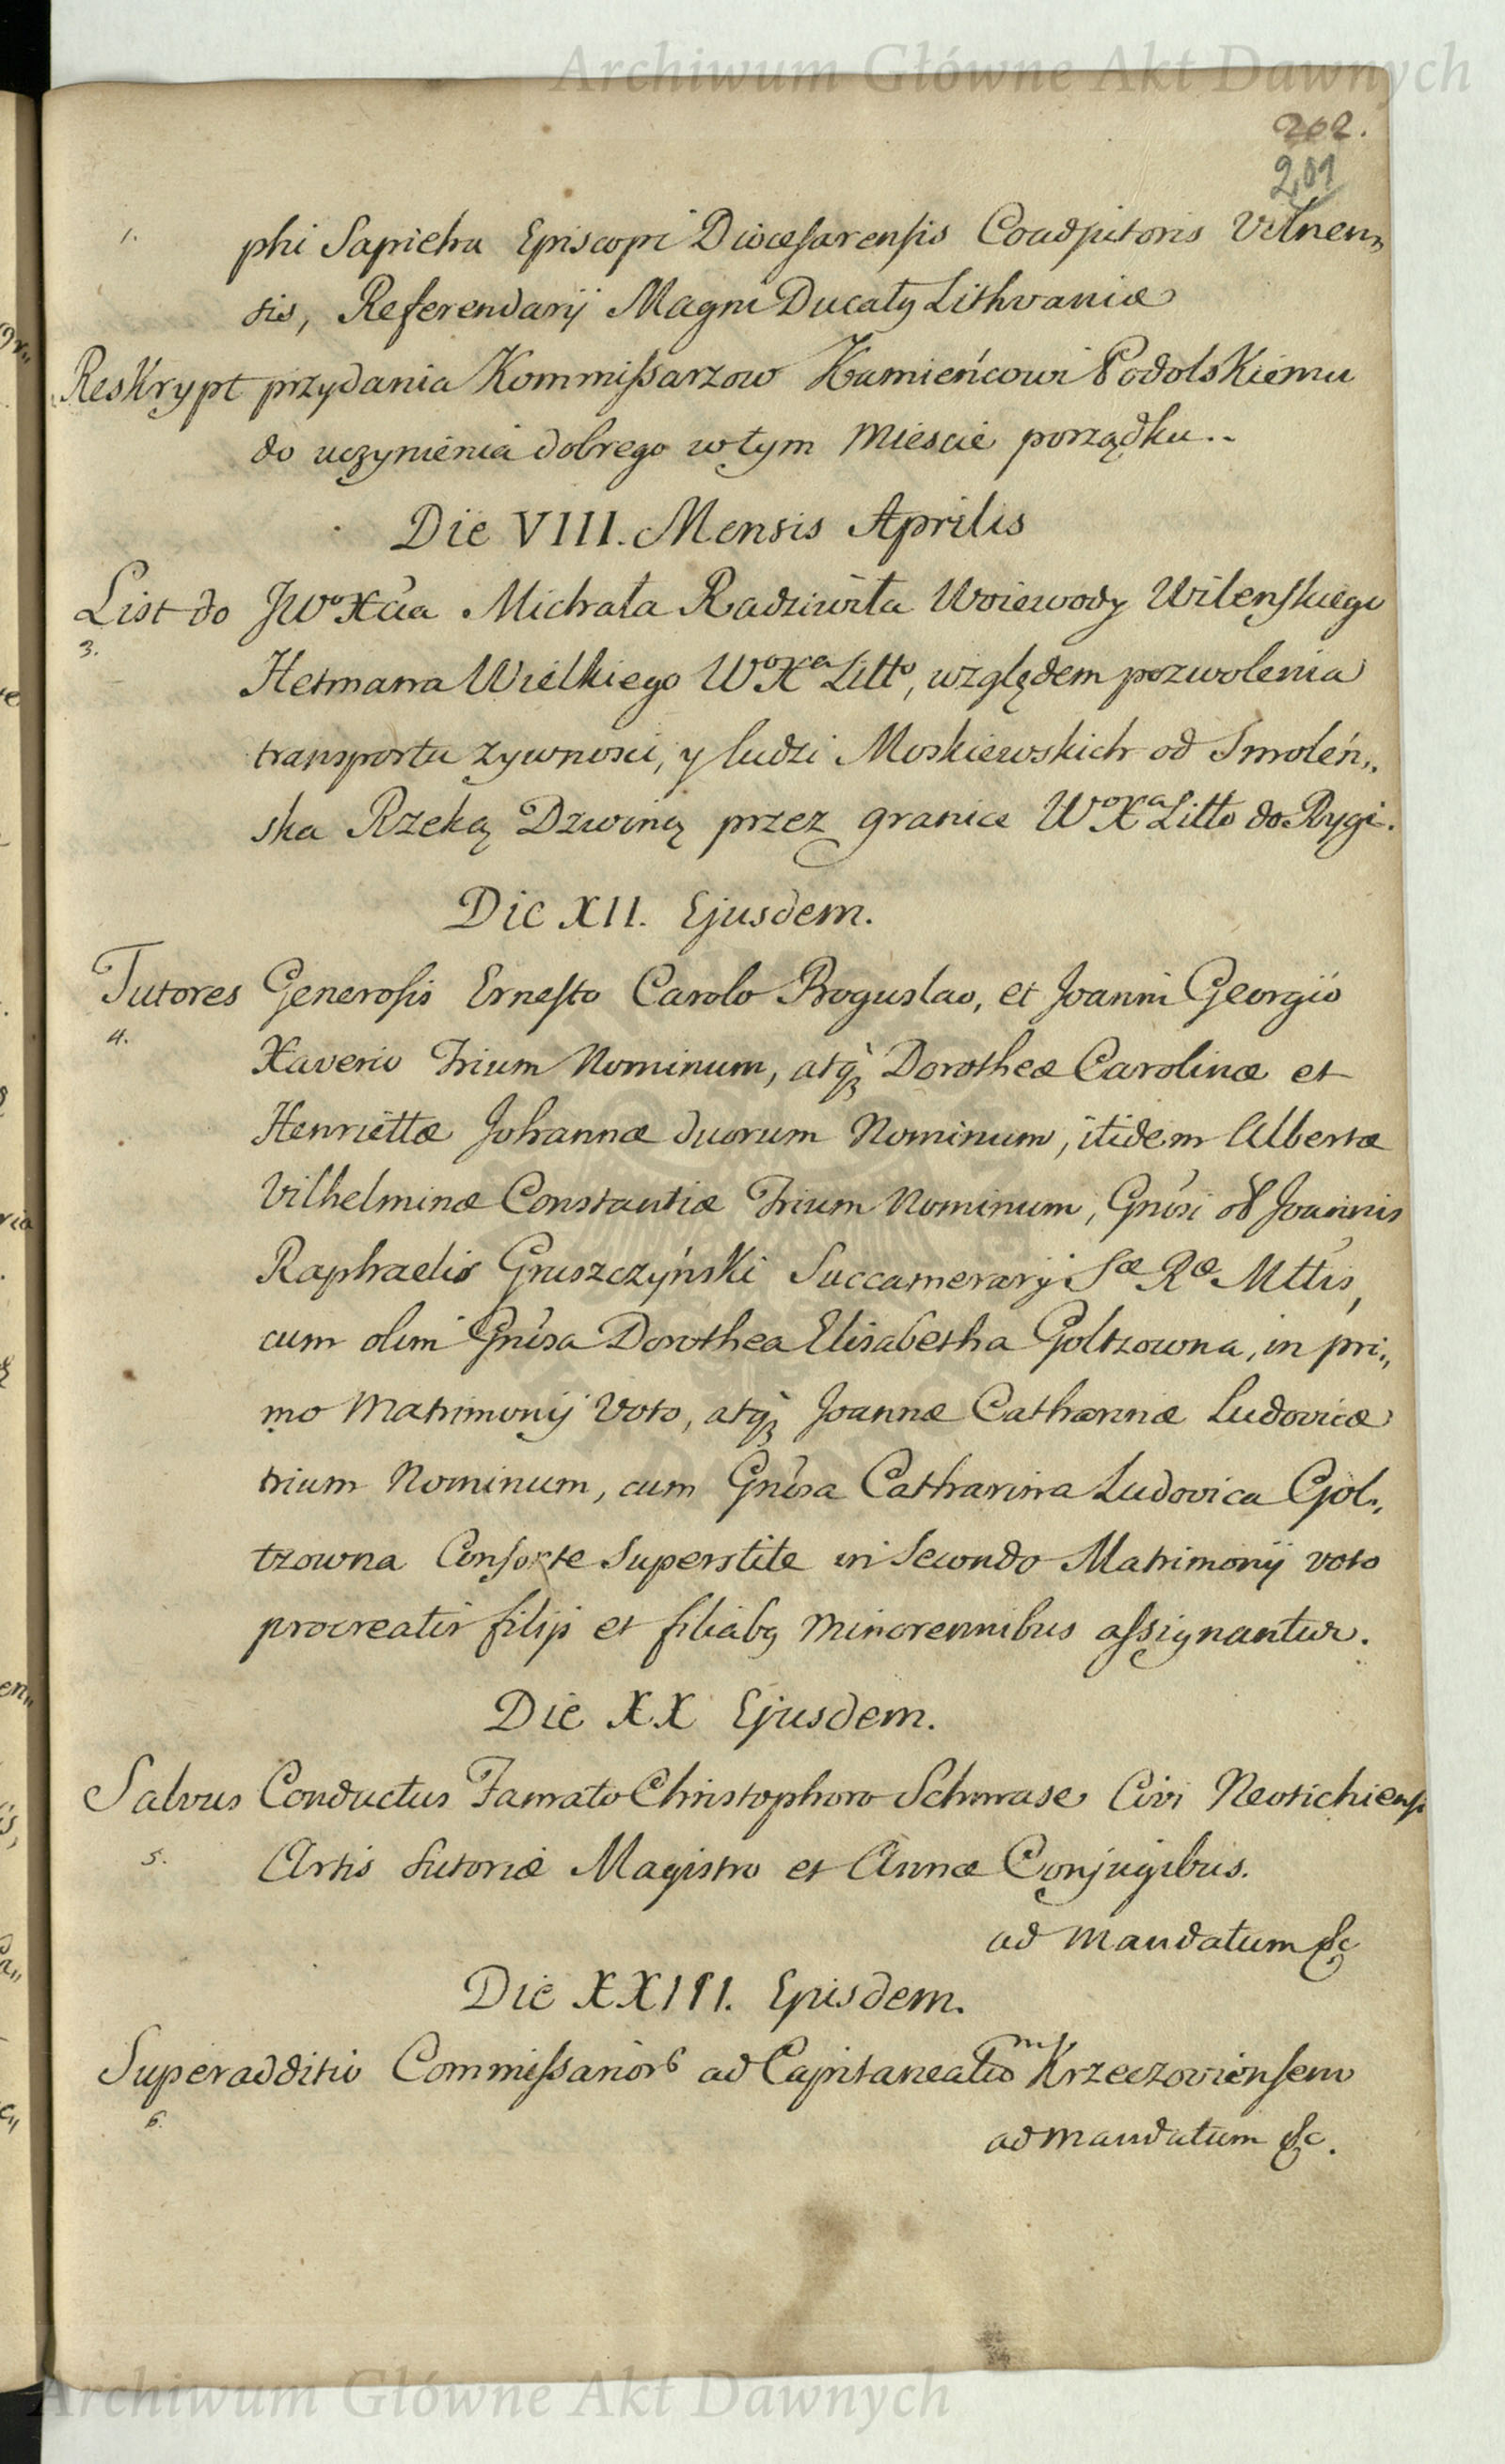 Archiwum Główne Akt Dawnych
202.
201
1. phi Sapieha Episcopi Diocesarensis Coadjutoris Vilnen„
sis, Referendarij Magni Ducatq Lithvaniæ
Reskrypt przydania Kommissarzow Kamieńcowi Podolskiemu
do uczynienia dobrego w tym Miescie porządku..
Die VIII. Mensis Aprilis
List do JWo Xcia Michała Radziwiła Woiewody Wilenskiego
3.
Hetmana Wielkiego WoXa Litto, względem pozwolenia
transportu zywnosci, y ludzi Moskiewskich od Smoleń„
ska Rzeką Dzwiną przez granice WoXa Litto do Rygi.
Die XII. Ejusdem.
Tutores Generosis Ernesto Carolo Boguslao, et Joanni Georgio
4.
Xaverio Trium Nominum, atq3 Dorotheæ Carolinæ et
Henriettæ Johannæ duorum Nominum, itidem Albertæ
Vilhelminæ Constantiæ Trium Nominum, Gnosi olim Joannis
Raphaelis Gruszczyński Succamerarij Sæ Ræ Mttis,
cum olim Gnosa Dorothea Elisabetha Goltzowna, in pri„
mo Matrimonij Voto, atq3 Joannæ Catharinæ Ludovicæ
trium Nominum, cum Gnosa Catharina Ludovica Gol„
tzowna Consorte Superstite in Secundo Matrimonij voto
procreatis filijs et filiabq Minorennibus assignantur.
Die XX Ejusdem.
Salvus Conductus Famato Christophoro Schwase Civi Neotichiensi
5. Artis Sutoriæ Magistro et Annæ Conjugibus.
ad Mandatum &c
Die XXIII. Ejusdem.
Superadditio Commissarior6 ad Capitaneatum Krzeczoviensem
6.
ad Mandatum &c.
Archiwum Główne Akt Dawnych